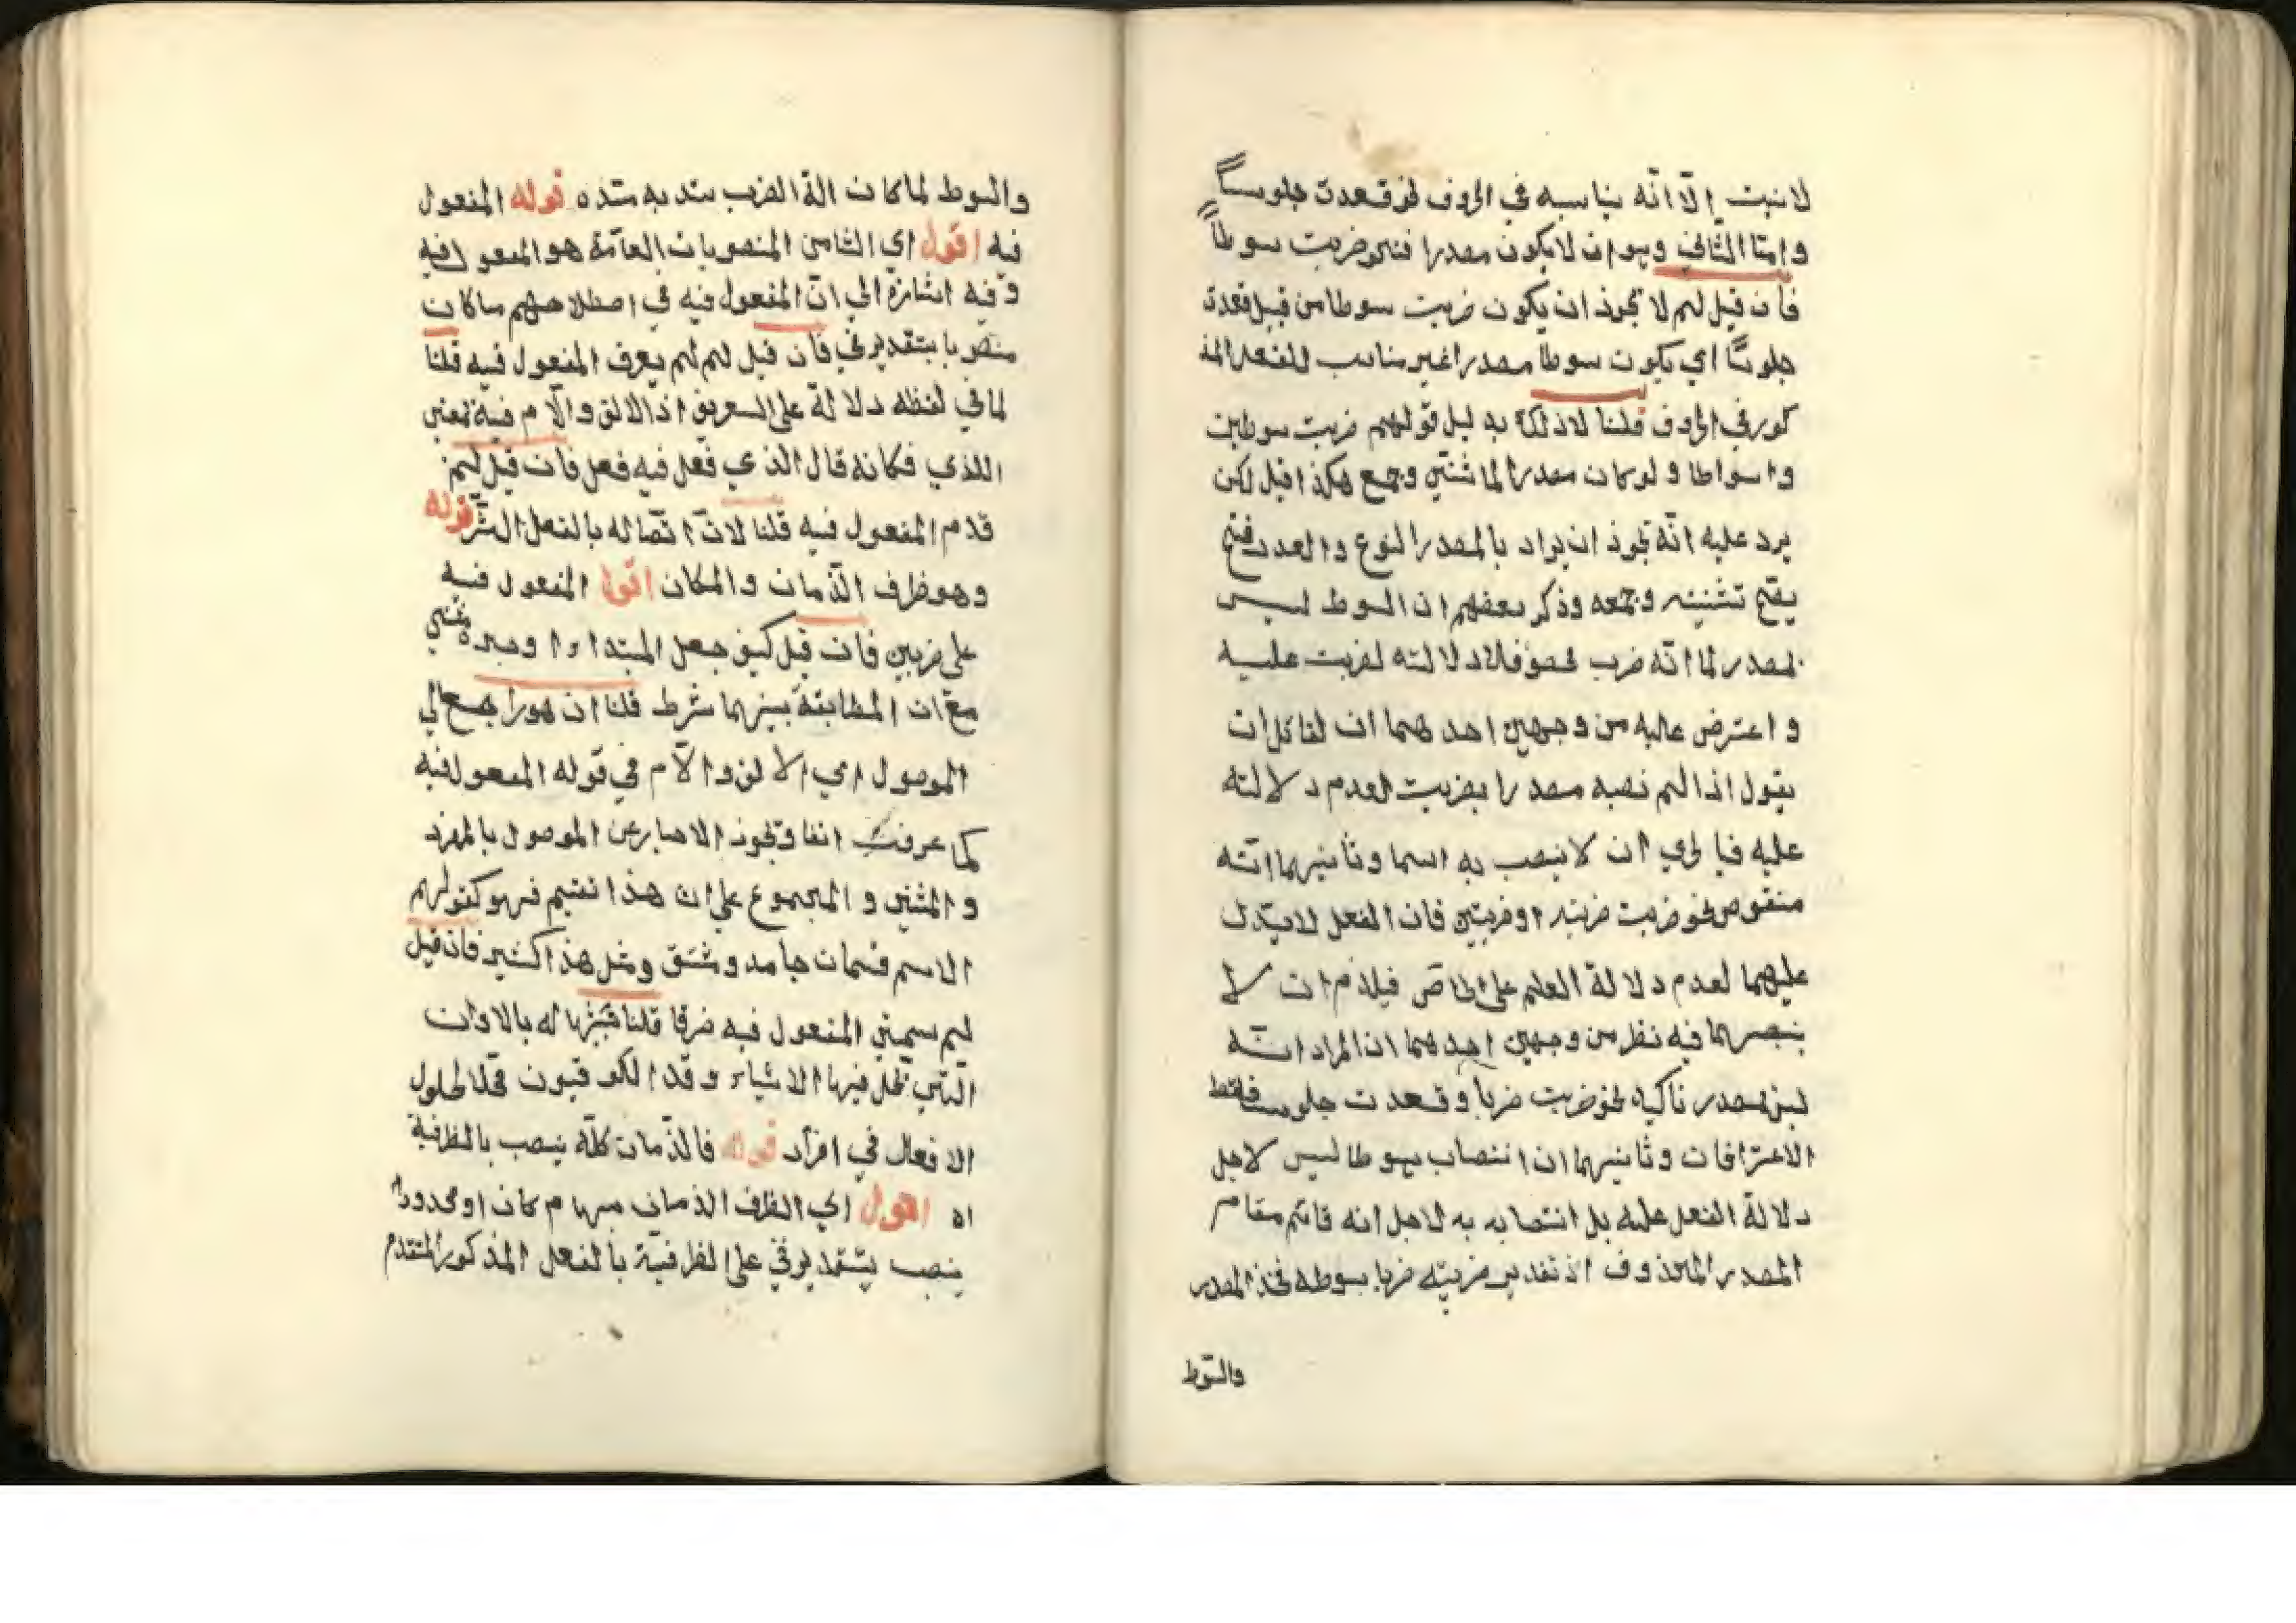 لانبت إلّا انّه يناسبه في الحروف نحو قعدت جلوساً
وامّا الثاني وهو ان لا يكون مصدرا فنحو ضربت سوطاً
فان قيل لم لا يجوز ان يكون ضربت سوطا من قبيل قعدت
جلوسًا اي يكون سوطا مصدرا غير مناسب للفعل المذ
كور في الحروف قلنا لا ذلك بدليل قولهم ضربت سوطين
واسواطا ولو كان مصدرا لما ثنّي وجمع هكذا قيل لكن
يرد عليه انّه يجوز ان يراد بالمصدر النوع والعدد فتح
يصح تثنيته وجمعه وذكر بعضهم ان السوط ليس
بمصدر لما انّه ضرب مخصوص فلا دلالته لضربت عليه
واعترض عليه من وجهين احدهما ان لقائل ان
يقول اذا لم نصبه مصدرا بضربت لعدم دلالته
عليه فبا لحري ان لا ينصب به اسما وثانيهما انّه
منقوض نحو ضربت ضربته او ضربتين فان الفعل لا يدل
عليهما لعدم دلالة العلم على الخاصّ فيلزم ان لا
ينصبهما فيه نظر من وجهين احدهما ان المراد انّه
ليس بمصدر تاكيد نحو ضربت ضربا وقعدت جلوسا فسقط
الاعتراضات وثانيهما ان انتصاب سوطا ليس لاجل
دلالة الفعل عليه بل انتصابه به لاجل انه قائم مقام
المصدر المحذوف اذ تقدير ضربته ضربا بسوطه فحذ المصدر
والسّوط
والسوط لما كان الة الضرب سد به مسّده قوله المفعول
فيه اقول اي الثامن المنصوبات العامّة هو المفعول فيه
وفيه اشارة الي انّ المفعول فيه في اصطلاحهم ما كان
منصوبا بتقدير في فان قيل لم لم يعرف المفعول فيه قلنا
لما في لفظه دلالة على التعريف اذ الالف والّام فيه بمعني
اللذي فكانه قال الذي فعل فيه فعل فان قيل لم
قدم المفعول فيه قلنا لانّ اتّصاله بالفعل اكثر قوله
وهو ظرف الزّمان والمكان اقول المفعول فيه
على ضربين فان قيل كيف جعل المبتداء واحدا وخبره مثنى
مع ان المطابقة بينهما شرط قلنا ان هو راجع الي
الموصول اي الالف والّام في قوله المفعول فيه
كما عرفت انفا ويجوز الاخبار عن الموصول بالمفرد
والمثني والمجموع علي ان هذا تقسيم فهو كقولهم
الاسم قسمان جامد ومشتق ومثل هذا كثير فان قيل
لم سمّي المفعول فيه ظرفا قلنا تشبيها له بالاوان
الّتي تحلّ فيها الاشياء وقد الكوفيون محّلا لحلول
الافعال في افراد قوله فالزّمان كلّه ينصب بالظرفية
اه اقول اي الظرف الزمان مبهام كان او محدودا
ينصب بتقدير في على الظرفيّة بالفعل المذكور المتقدم